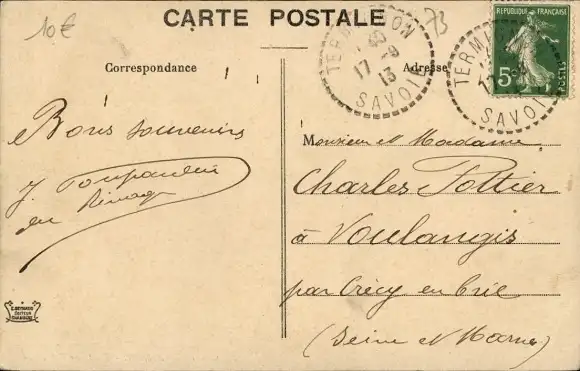 10€
73
CARTE POSTALE
Correspondance
Adresse
TERMIGNON
17-9
13
SAVOIE
TERMIGNON
SAVOIE
RÉPUBLIQUE FRANÇAISE
5c
POSTES
Bons souvenirs
J.
du
Monsieur et Madame
Charles Pottier
à Voulangis
par Crécy en Brie
(Seine et Marne)
ÉDITEUR